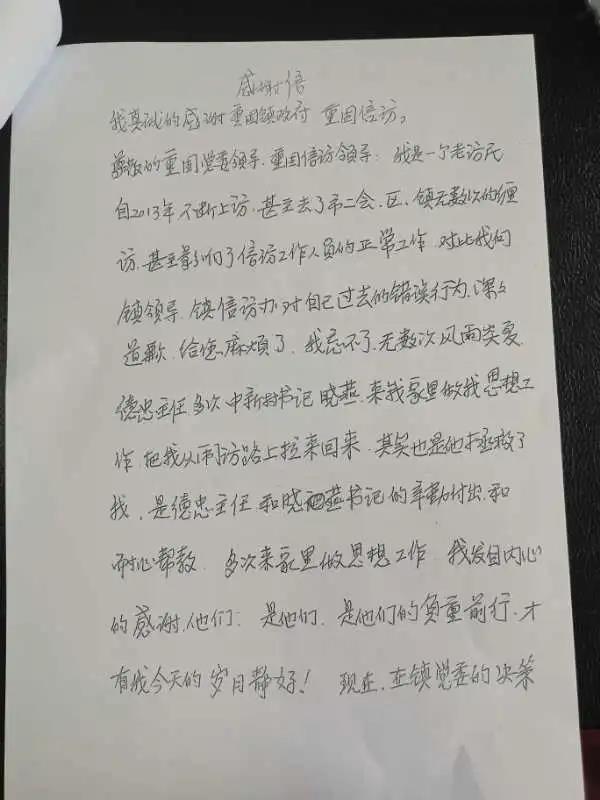 感谢信
我真诚的感谢重固镇政府 重固信访。
尊敬的重固党委领导、重固信访领导：我是一个老访民
自2013年不断上访、甚至去了市二会、区、镇无数次的缠
访、甚至影响了信访工作人员的正常工作、对此我向
镇领导、镇信访办对自己过去的错误行为、深与
道歉、给您麻烦了、我忘不了、无数次风雨
德忠主任、多次中新村书记晓燕、来我家里做我思想工
作、把我从上访路上拉来回来、其实也是他拯救了
我、是德忠主任、和晓燕书记的辛勤付出、和
耐心帮教、多次来家里做思想工作、我发自内心
的感谢、他们：是他们、是他们的负重前行、才
有我今天的岁月静好！ 现在、在镇党委的决策